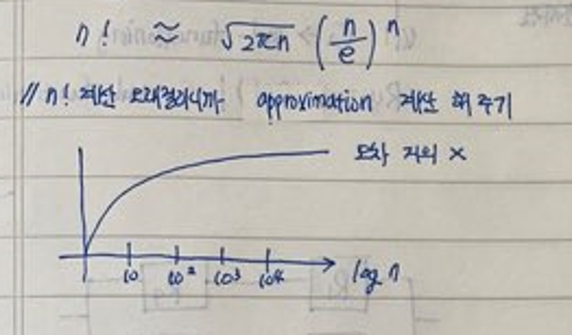 n! ≈ √2πn (n/e)ⁿ
// n! 계산 오래걸리니까 approximation 계산 해 주기
오차 거의 ×
10 10² 10³ 10⁴ log n